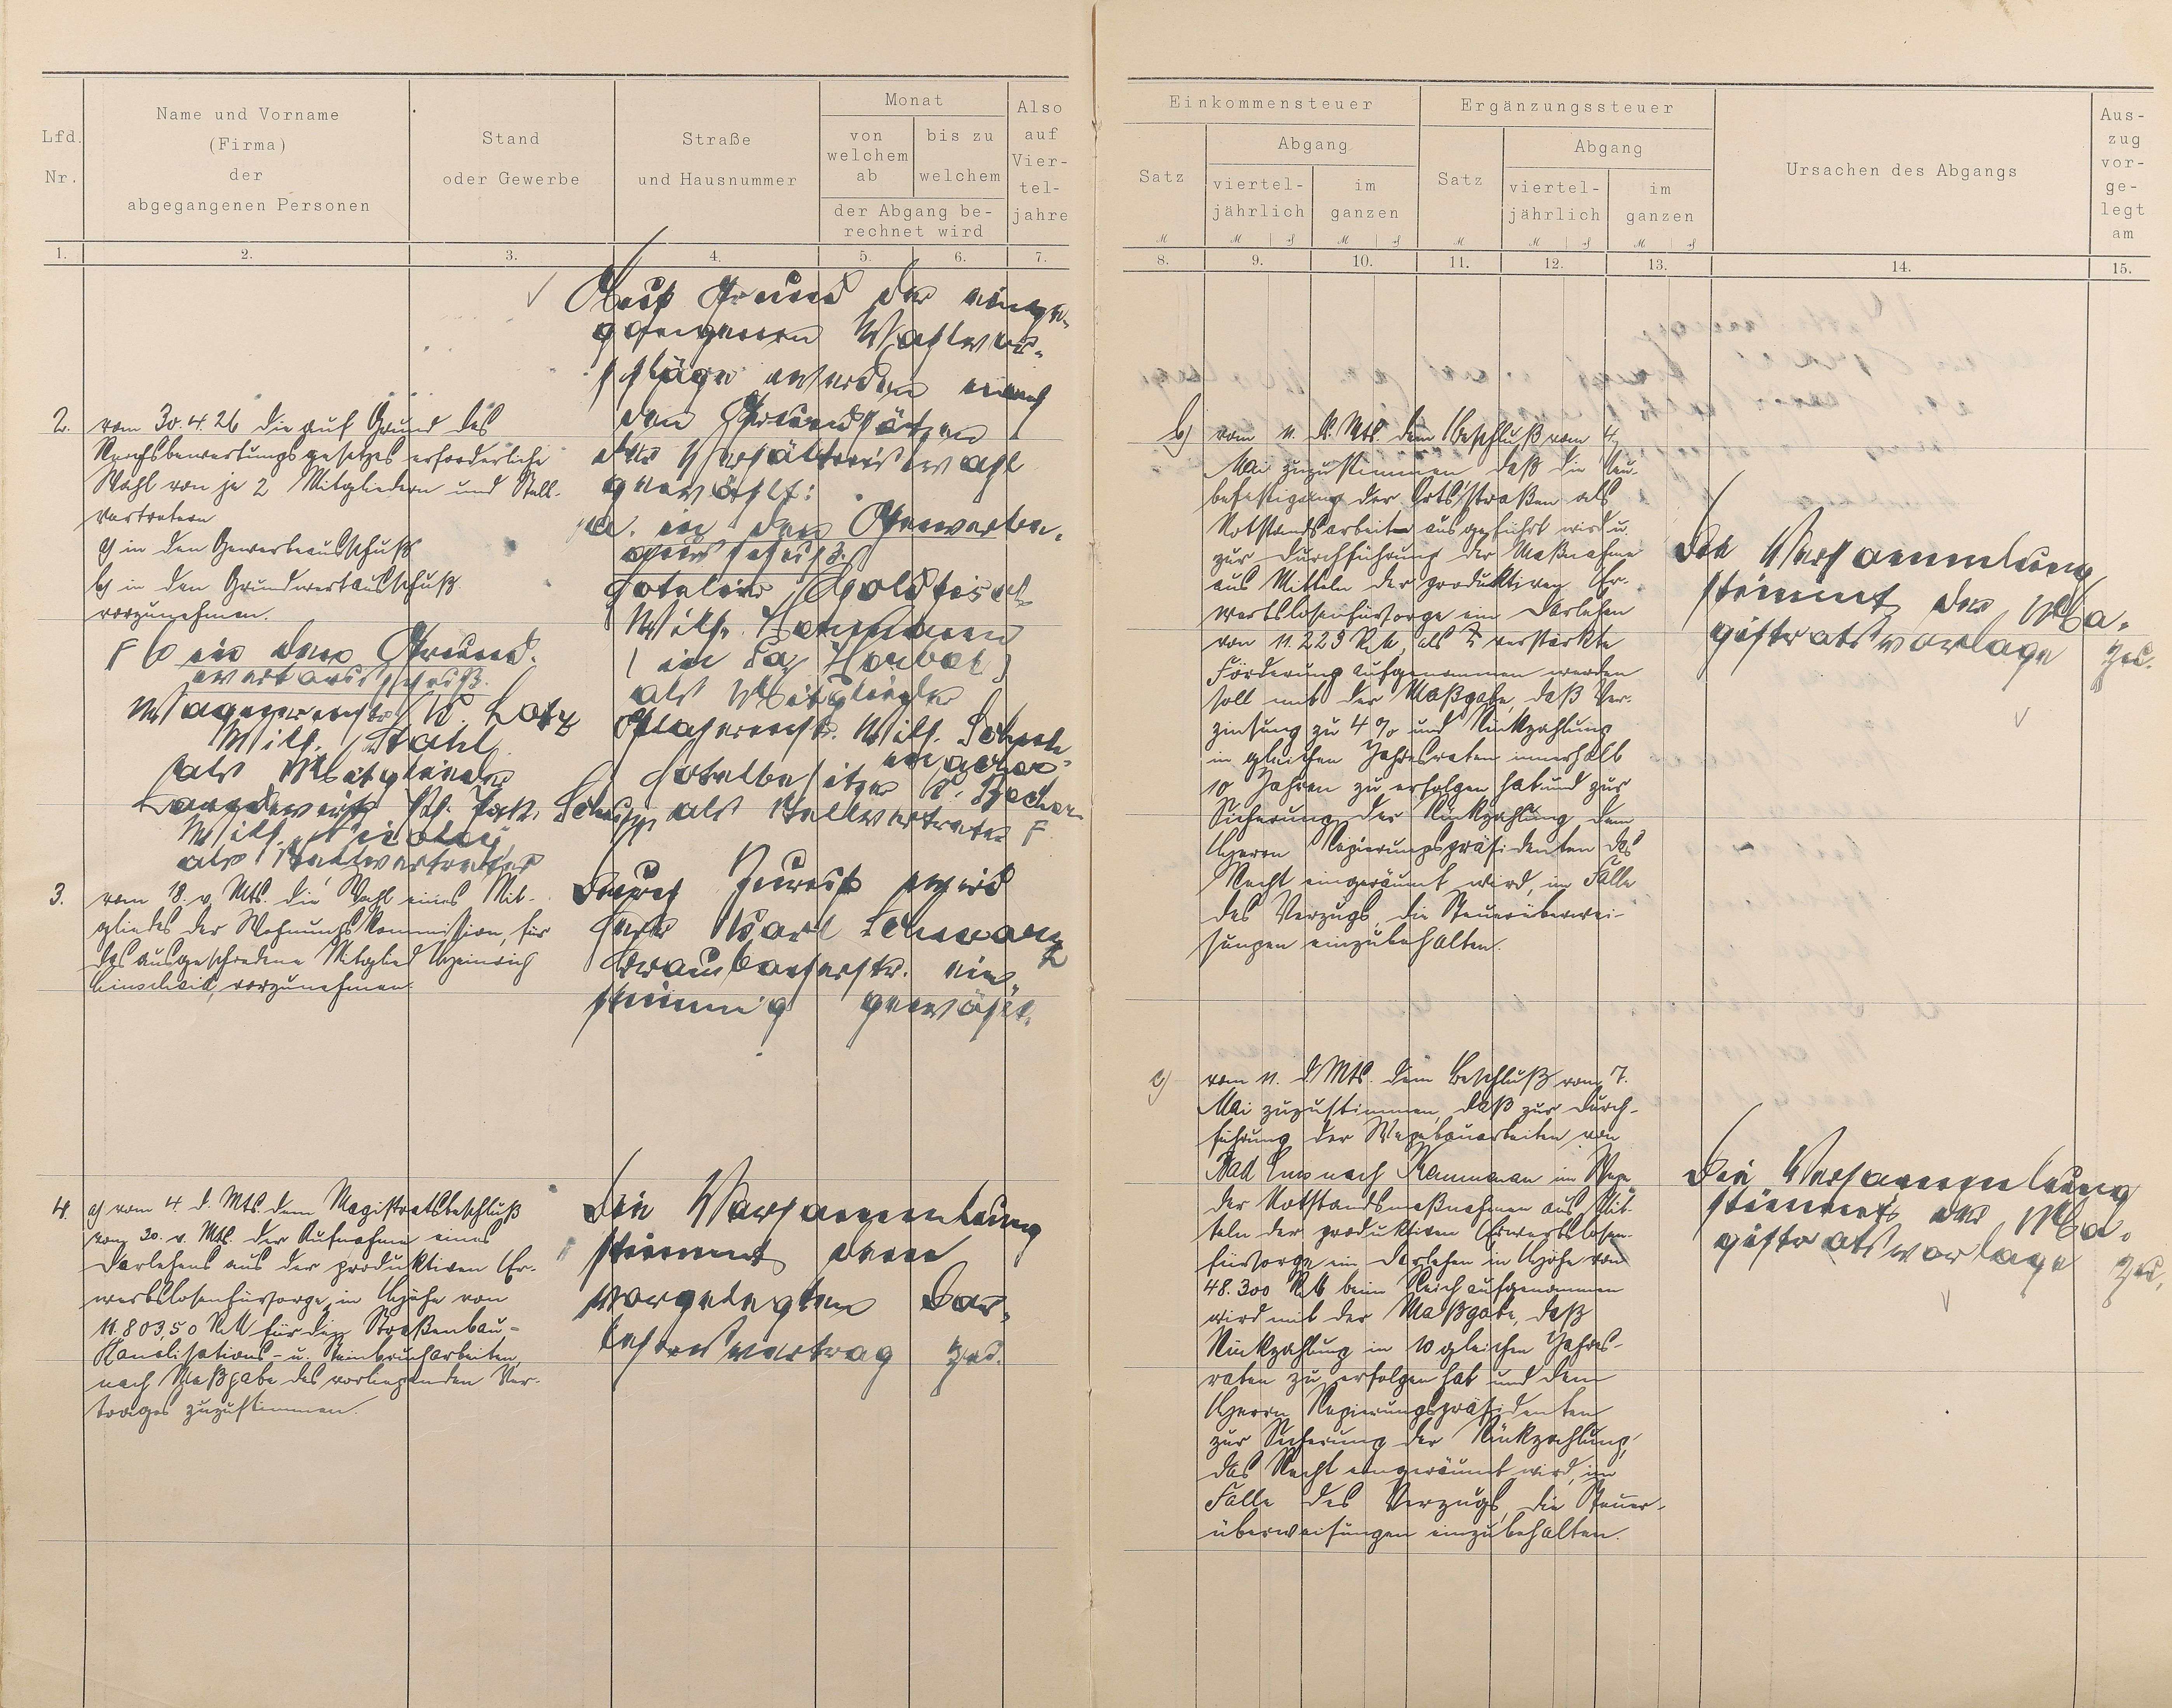 Lfd. Nr.
Name und Vorname
(Firma)
der
abgegangenen Personen
Stand
oder Gewerbe
Straße
und Hausnummer
Monat
von welchem ab
bis zu welchem
der Abgang be-
rechnet wird
Also
auf
Vier-
tel-
jahre
1. 2. 3. 4. 5. 6. 7.
2. vom 30.4.26 die auf Grund des
Reichsbewertungsgesetzes erforderliche
Wahl von je 2 Mitgliedern und Stell-
vertretern
a) in den Gewerbeausschuß
b) in den Grundwertausschuß
vorzunehmen.
F b in den Grund-
wertausschuß.
Wagenmeister W. Lotz
Wilh. Stahl
als Mitglieder
Landwirt
Wilh.
als Stellvertreter
Auf Grund der einge-
gangenen Wahlvor-
schläge werden nach
den Grundsätzen
der Verhältniswahl
gewählt:
a. in den Gewerbe-
ausschuß.
Hotelier Goldfisch
Wilh.
(in Fa.
als Mitglieder
Wilh.
Hotelbesitzer
als Stellvertreter F
3. vom 18. v. Mts. die Wahl eines Mit-
gliedes der Wohnungskommission, für
das ausgeschiedene Mitglied Heinrich
vorzunehmen.
Durch Zuruf wird
Herr Karl Schwarz
Braubacherstr. ein-
stimmig gewählt.
4. a) vom 4. d. Mts. dem Magistratsbeschluß
vom 30. v. Mts. der Aufnahme eines
Darlehens aus der produktiven Er-
werbslosenfürsorge in Höhe von
11.803,50 RM für die Straßenbau-
Kanalisations- u. Steinbrucharbeiten,
nach Maßgabe des vorliegenden Ver-
trages zuzustimmen.
Die Versammlung
stimmt dem
vorgelegten Dar-
lehensvertrag zu.
Einkommensteuer
Satz
Abgang
viertel-
jährlich
im
ganzen
Ergänzungssteuer
Satz
Abgang
viertel-
jährlich
im
ganzen
Ursachen des Abgangs
Aus-
zug
vor-
ge-
legt
am
8. 9. 10. 11. 12. 13. 14. 15.
b) vom 11. ds. Mts. dem Beschluß vom 4.
Mai zuzustimmen, daß die Neu-
befestigung der Ortsstraßen als
Notstandsarbeit ausgeführt wird u.
zur Durchführung der Maßnahme
aus Mitteln der produktiven Er-
werbslosenfürsorge ein Darlehen
von 11.229 RM als verstärkte
Förderung aufgenommen werden
soll mit der Maßgabe, daß Ver-
zinsung zu 4% und Rückzahlung
in gleichen Jahresraten innerhalb
10 Jahren zu erfolgen hat und zur
Sicherung der Rückzahlung dem
Herrn Regierungspräsidenten das
Recht eingeräumt wird, im Falle
des Verzugs, die Steuerüberwei-
sungen einzubehalten.
Die Versammlung
stimmt der Ma-
gistratsvorlage zu.
c) vom 11. d. Mts. dem Beschluß vom 7.
Mai zuzustimmen, daß zur Durch-
führung der Wegebauarbeiten von
Bad Ems nach Kemmenau im Wege
der Notstandsmaßnahmen aus Mit-
teln der produktiven Erwerbslosen-
fürsorge ein Darlehen in Höhe von
48.300 RM beim Reich aufgenommen
wird mit der Maßgabe, daß
Rückzahlung in 10 gleichen Jahres-
raten zu erfolgen hat und dem
Herrn Regierungspräsidenten
zur Sicherung der Rückzahlung,
das Recht eingeräumt wird, im
Falle des Verzugs, die Steuer-
überweisungen einzubehalten.
Die Versammlung
stimmt der Ma-
gistratsvorlage zu.